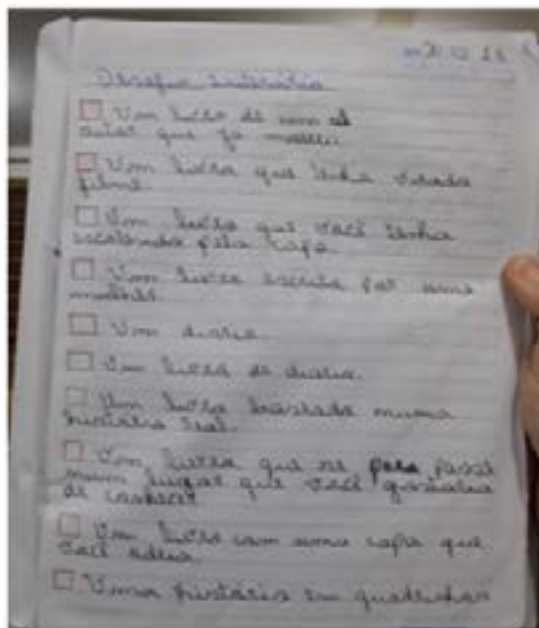 Desafio Literário
Um livro de um
autor que já morreu.
Um livro que tenha virado
filme.
Um livro que você tenha
escolhido pela capa.
Um livro escrito por uma
mulher.
Um diario.
Um livro de
Um livro baseado numa
história real.
Um livro que se passa
num lugar que você gostaria
de conhecer
Um livro com uma capa que
você odeia.
Uma história em quadrinhos